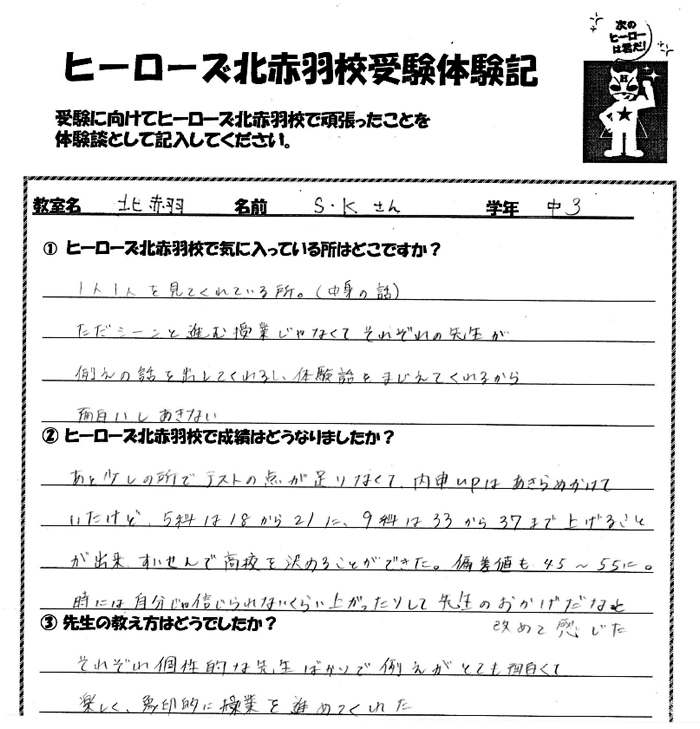 次の
ヒーロー
は君だ!
ヒーローズ北赤羽校受験体験記
受験に向けてヒーローズ北赤羽校で頑張ったことを
体験談として記入してください。
教室名 北赤羽 名前 S・Kさん 学年 中3
① ヒーローズ北赤羽校で気に入っている所はどこですか?
1人1人を見てくれている所。(中身の話)
ただシーンと進む授業じゃなくてそれぞれの先生が
例えの話を出してくれるし、体験話をまじえてくれるから
面白いしあきない
② ヒーローズ北赤羽校で成績はどうなりましたか?
あと少しの所でテストの点が足りなくて、内申upはあきらめかけて
いたけど、5科は18から21に、9科は33から37まで上げること
が出来、すいせんで高校を決めることができた。偏差値も45~55に。
時には自分じゃ信じられないくらい上がったりして先生のおかげだなと
改めて感じた
③ 先生の教え方はどうでしたか?
それぞれ個性的な先生ばかりで例えがとても面白くて
楽しく、印的に授業を進めてくれた